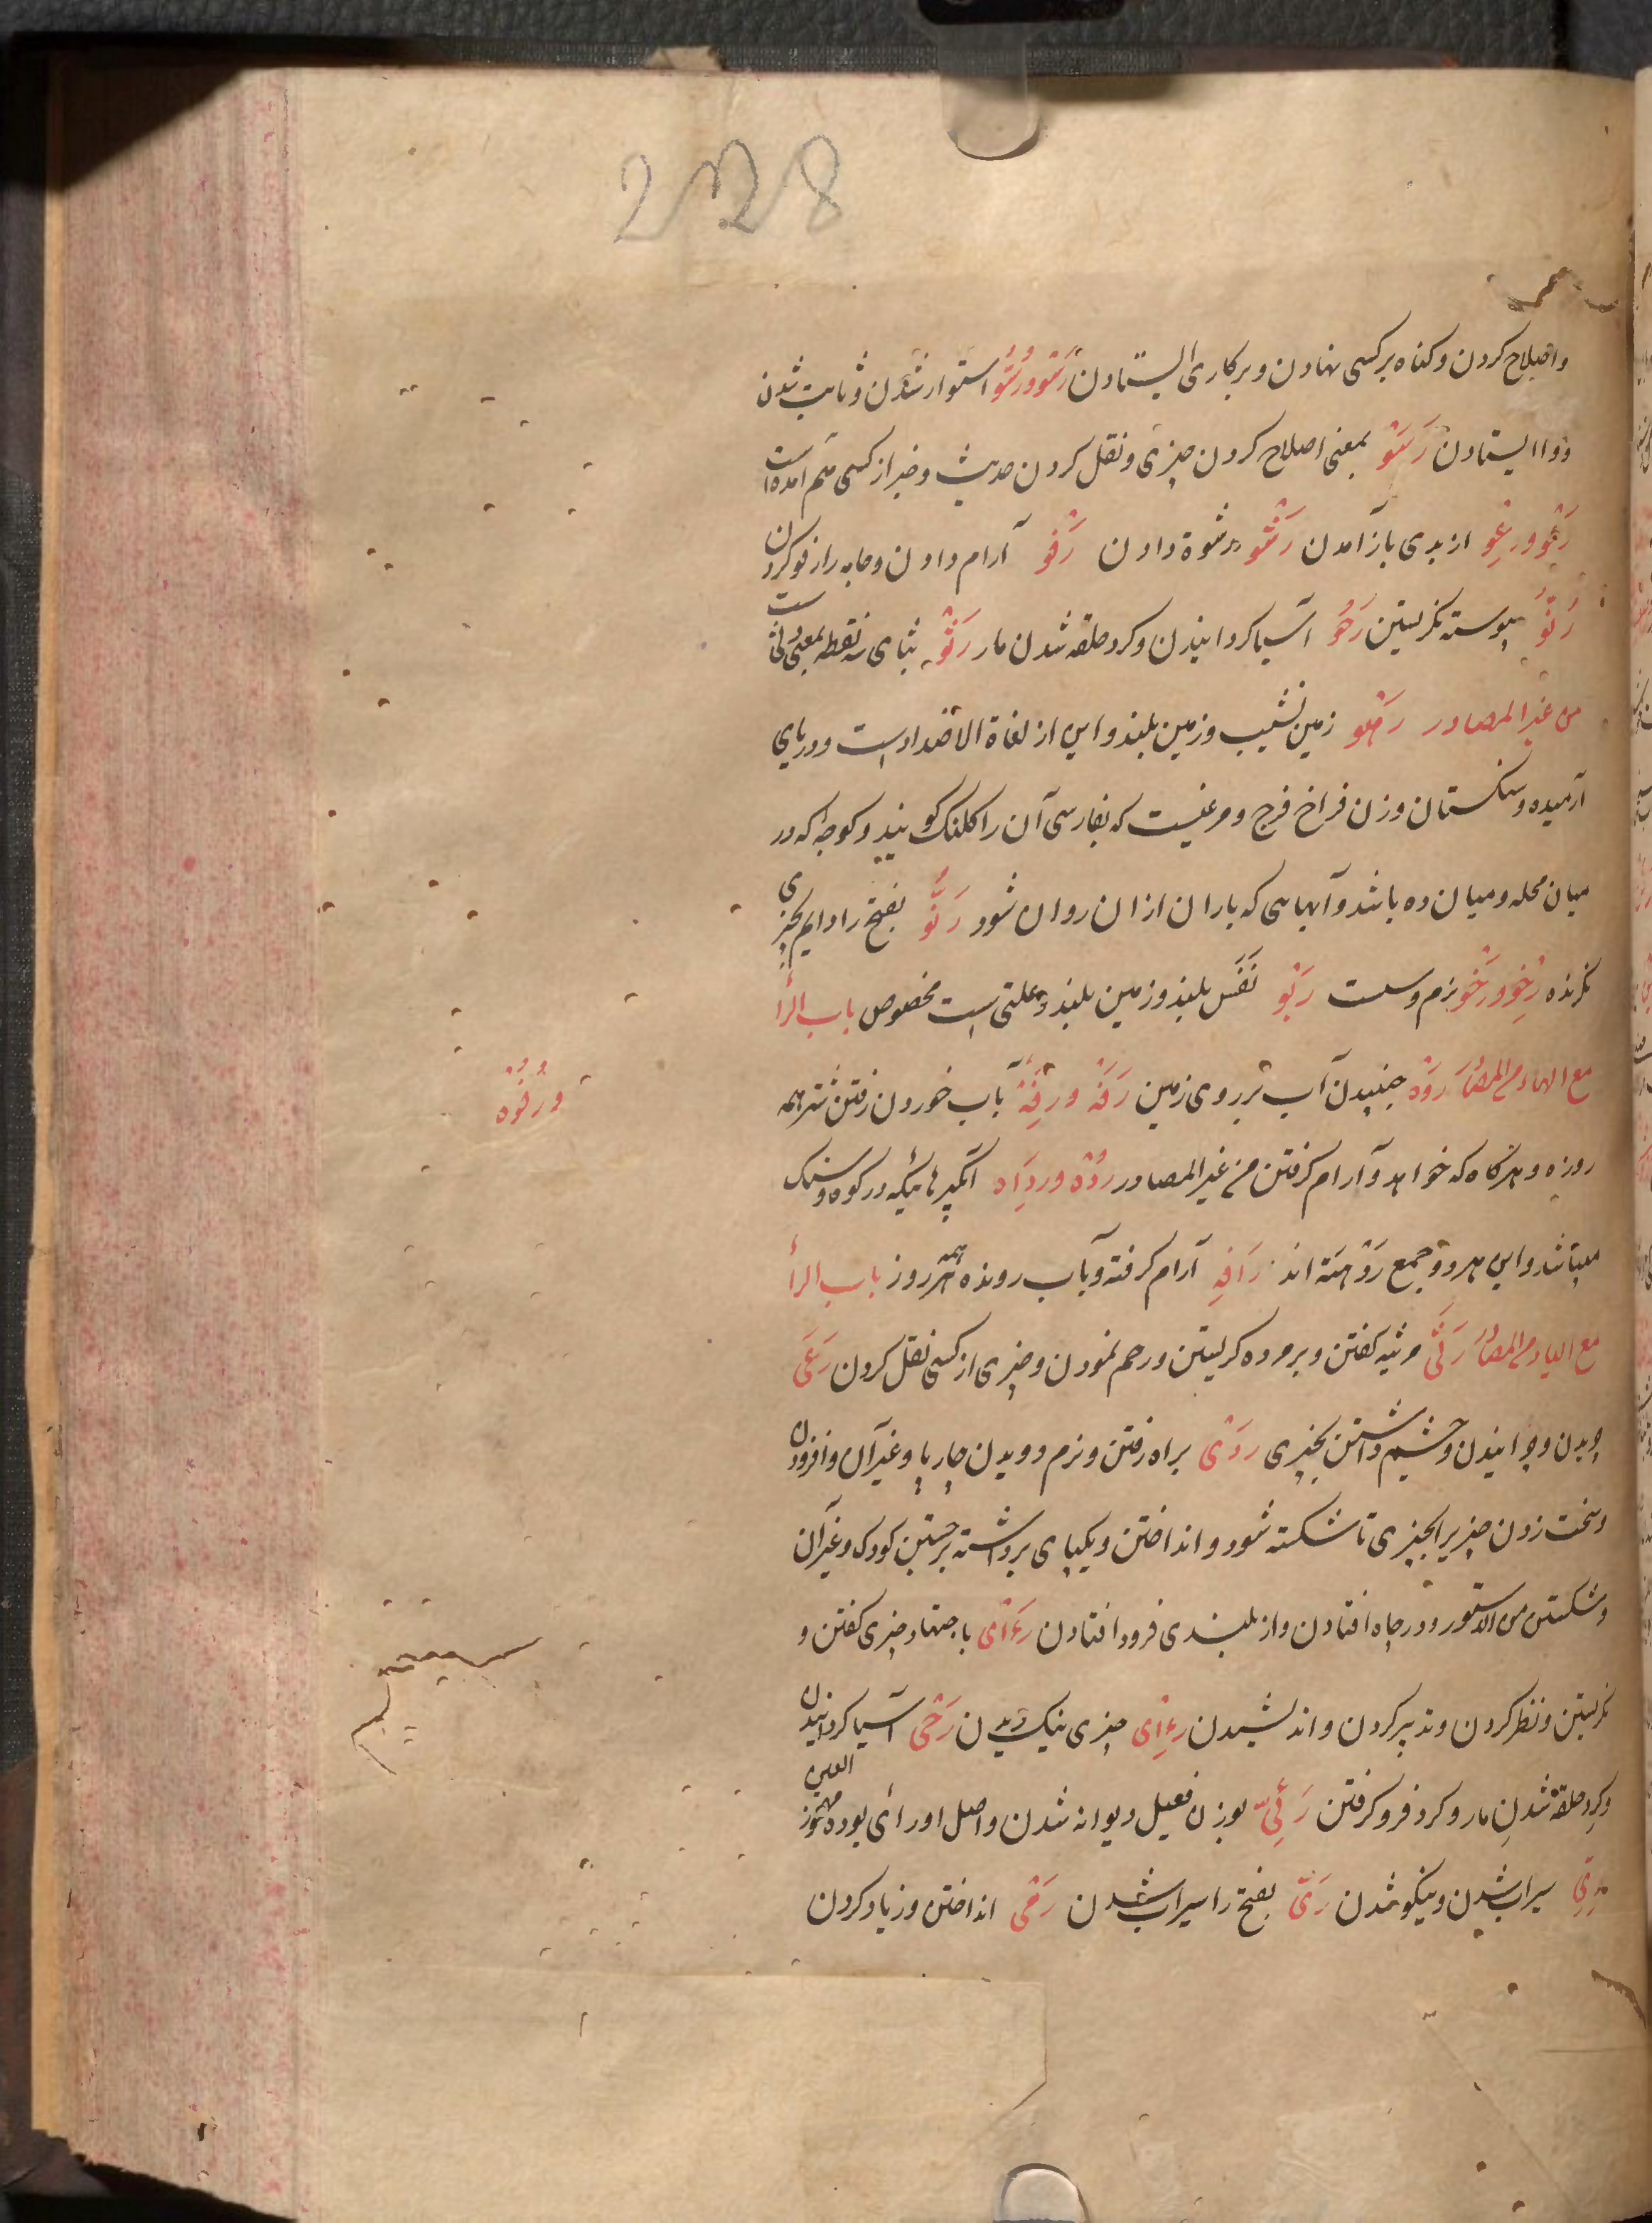 228
واصلاح کردن و کناه بر کسی نهادن و بر کاری ایستادن رَسْو ورُسُوّ استوار شدن و ثابت شدن
و وا ایستادن رَسْو بمعنی اصلاح کردن چیزی و نقل کردن حدیث و خبر از کسی هم امده است
رَعْو ورِعْو از بدی باز آمدن رَشْو رشوة دادن رَفْو آرام دادن و جامه را رفو کردن
رَنْو پیوسته نکریستن رَحْو آسیا کردانیدن و کرد حلقه شدن مار رَثْو بثای سه نقطه بمعنی
من غیر المصادر رَهْو زمین نشیب و زمین بلند و این از لغاة الاضداد است و دریای
آرمیده و سنکستان و زن فراخ فرج و مرغیست که بفارسی آن را کلنک کویند و کوچه که در
میان محله و میان ده باشد و آبهایی که باران از ان روان شود رَنُوّ بفتح را دایم بچیزی
نکرنده رِخو ورَخو نرم و سست رَبْو نَفَس بلند و زمین بلند و علتی است مخصوص باب الرأ
مع الهاء من المصادر رَوْه جنبیدن آب بر روی زمین رَفْه ورِفْه بآب خوردن رفتن شتر همه
ورُفُوْه
روزه و هر کاه که خواهد و آرام کرفتن من غیر المصادر رُدْه ورِدَاه آبکیرهائیکه در کوه و سنک
میباشد و این هر دو جمع رَدْهَة اند رَافِه آرام کرفته و بآب رونده همه روز باب الرأ
مع الیاء من المصادر رَثْی مرثیه کفتن و بر مرده کریستن و رحم نمودن و چیزی از کسی نقل کردن رَعْی
چریدن و چرانیدن و چشم داشتن بچیزی رَدْی براه رفتن و نرم دویدن چارپا و غیر آن و افزودن
و سخت زدن چیزیرا بچیزی تا شکسته شود و انداختن و یکپای برداشته برجستن کودک و غیر آن
و شکستن و در چاه افتادن و از بلندی فرود افتادن رَءْای باجتهاد چیزی کفتن و
نکریستن و نظر کردن و تدبیر کردن و اندیشیدن رِءْای چیزی نیک دیدن رَحْی آسیا کردانیدن
و کرد حلقه شدن مار و کرد فرو کرفتن رَئِیّ بوزن فعیل دیوانه شدن و اصل او رأی بوده مهموز العین
رِیّ سیراب شدن و نیکو شدن رَیّ بفتح را سیراب شدن رَمْی انداختن و زیاد کردن